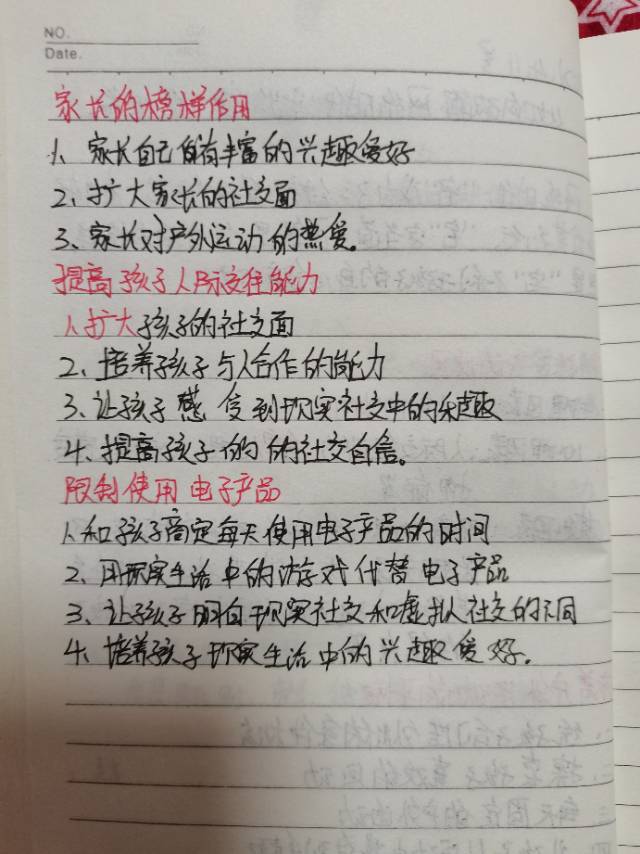 NO.
Date.
家长的榜样作用
1、家长自己有丰富的兴趣爱好
2、扩大家长的社交面
3、家长对户外运动的热爱。
提高孩子人际交往能力
1、扩大孩子的社交面
2、培养孩子与人合作的能力
3、让孩子感受到现实社交中的乐趣
4、提高孩子的的社交自信。
限制使用电子产品
1、和孩子商定每天使用电子产品的时间
2、用现实生活中的游戏代替电子产品
3、让孩子明白现实社交和虚拟人社交的不同
4、培养孩子现实生活中的兴趣爱好。